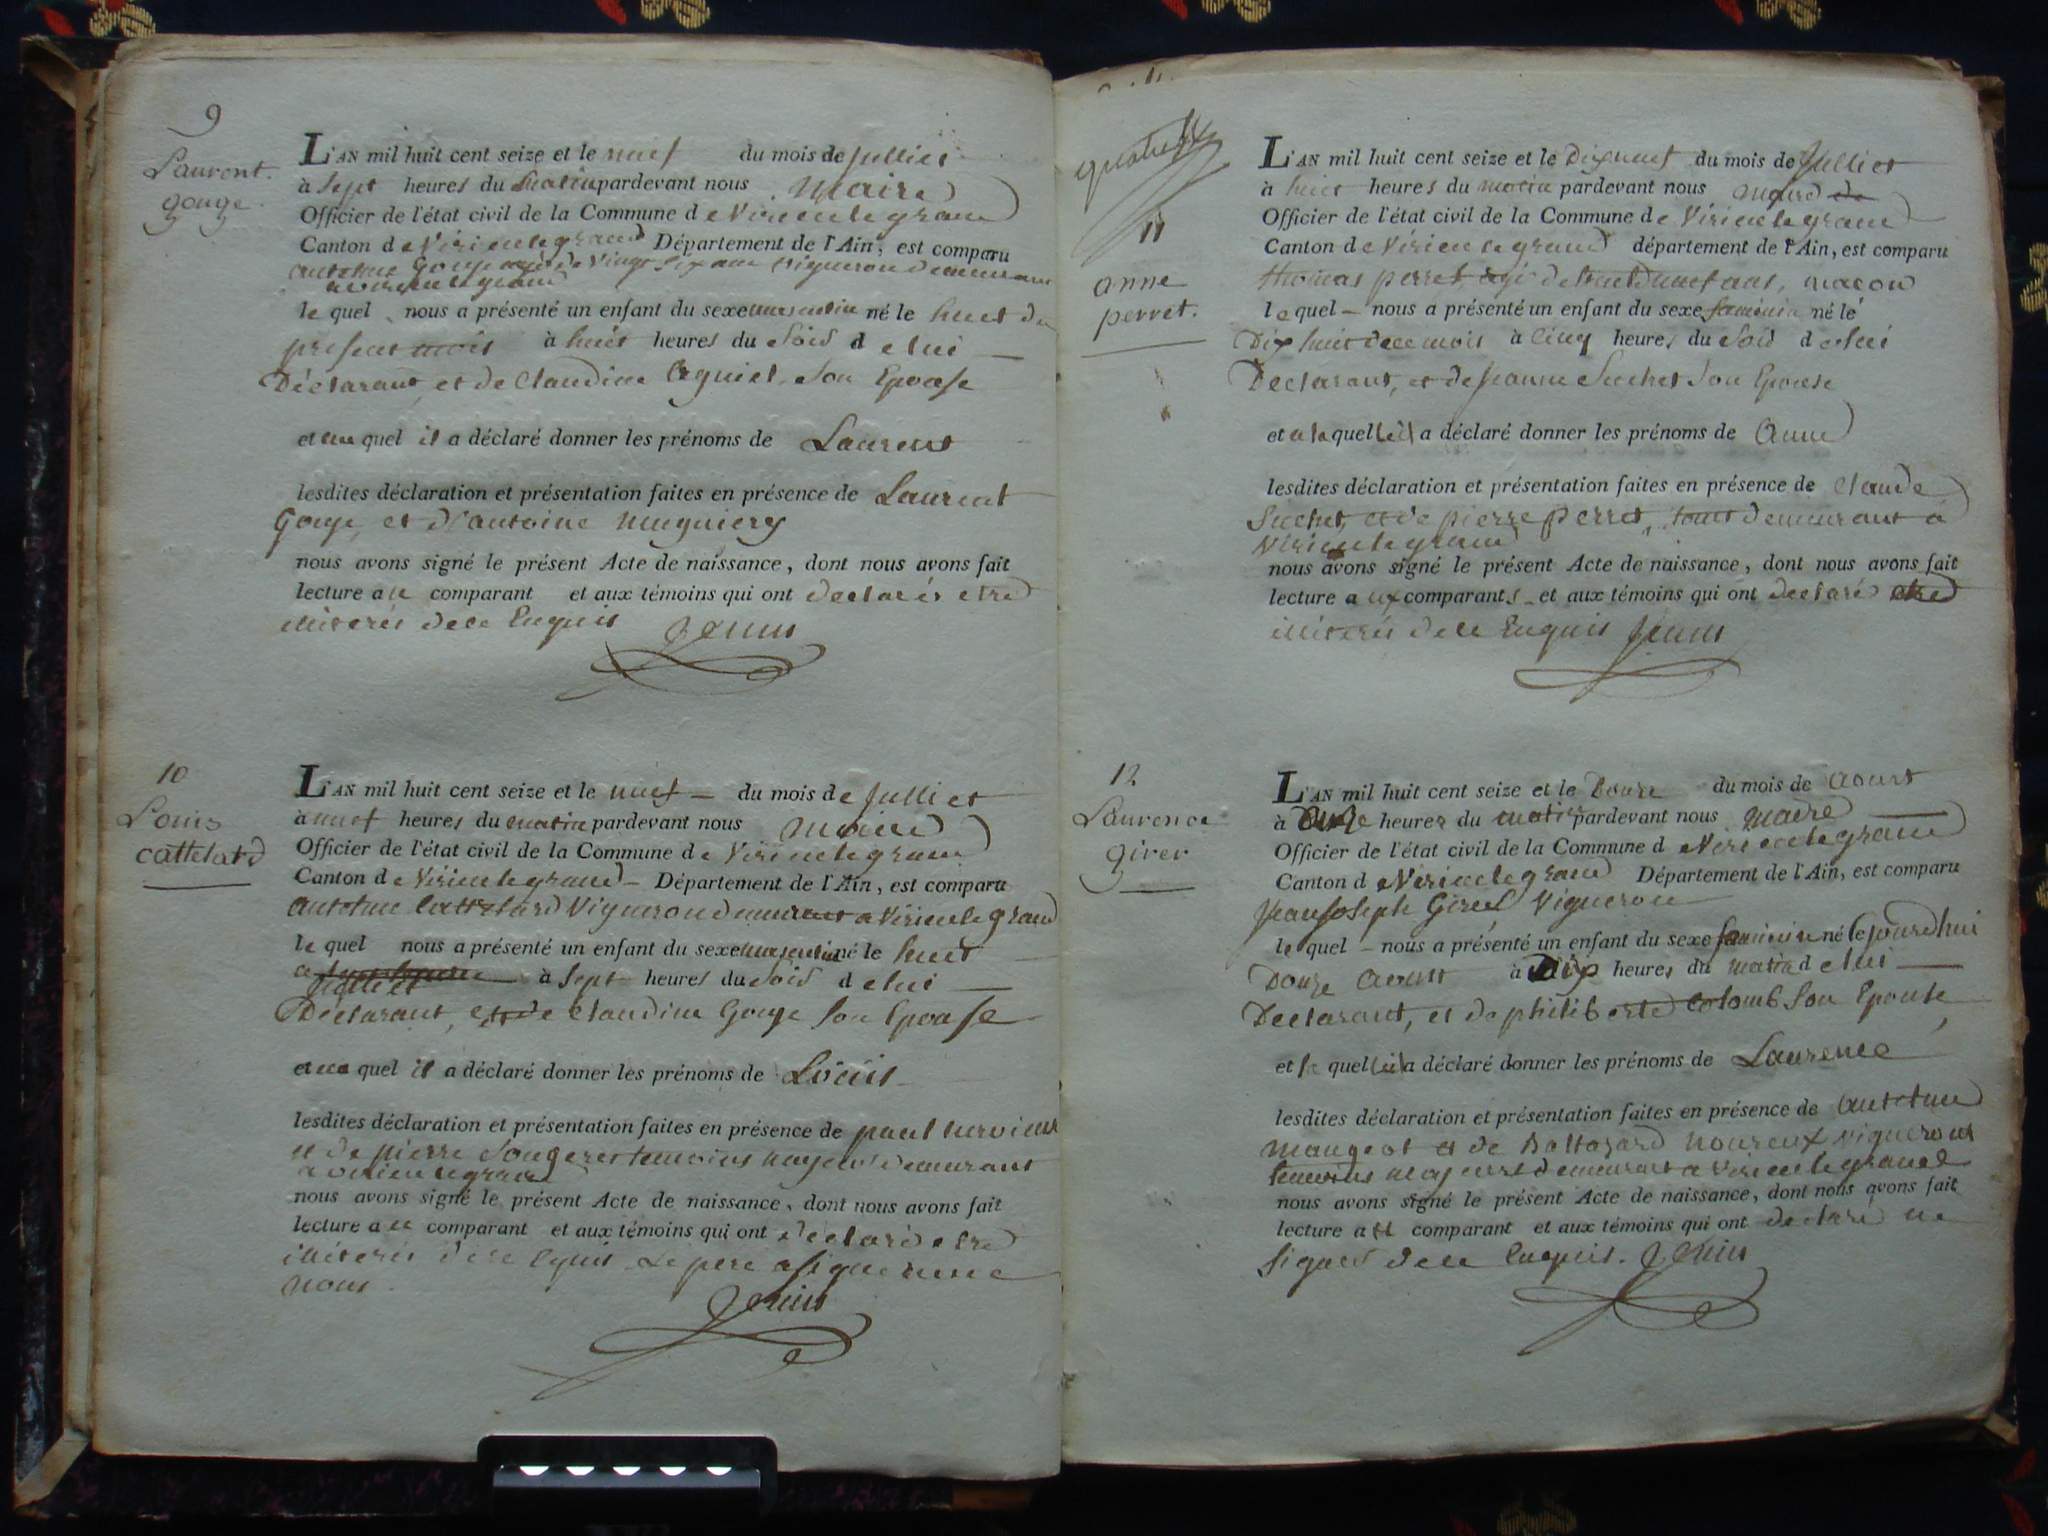 9
Laurent
gouge
L'AN mil huit cent seize et le neuf du mois de Julliet
à sept heures du matin pardevant nous Maire
Officier de l'état civil de la Commune d e Virieu le grand
Canton d e Virieu le grand Département de l'Ain, est comparu
antoine Gouge agé de vingt six ans vigneron demeurant
a virieu le grand
le quel nous a présenté un enfant du sexe masculin né le huit du
present mois à huit heures du soir d e lui
Déclarant, et de Claudine son Epouse
et au quel il a déclaré donner les prénoms de Laurent
lesdites déclaration et présentation faites en présence de Laurent
Gouge, et d'antoine
nous avons signé le présent Acte de naissance, dont nous avons fait
lecture a u comparant et aux témoins qui ont declarés etre
illiterés de ce Enquis Jenin
10
Louis
cattelard
L'AN mil huit cent seize et le neuf du mois d e Julliet
à neuf heures du matin pardevant nous Maire
Officier de l'état civil de la Commune d e Virieu le grand
Canton d e Virieu le grand Département de l'Ain, est comparu
antoine Cattelard Vigneron demeurant a Virieu le grand
le quel nous a présenté un enfant du sexe masculin né le huit
julliet à sept heures du soir d e lui
Déclarant, et de Claudine Gouge son Epouse
et au quel il a déclaré donner les prénoms de Louis
lesdites déclaration et présentation faites en présence de paul
et de pierre temoins majeurs demeurant
a virieu le grand
nous avons signé le présent Acte de naissance, dont nous avons fait
lecture a u comparant et aux témoins qui ont declaré etre
illiterés de ce Le pere a signé avec
nous.
Jenin
quatre
11
anne
perret.
L'AN mil huit cent seize et le Dix neuf du mois de Julliet
à huit heures du matin pardevant nous maire de
Officier de l'état civil de la Commune d e Virieu le grand
Canton d e Virieu le grand département de l'Ain, est comparu
thomas perret, agé de ans, macon
l e quel nous a présenté un enfant du sexe feminin né lé
Dix huit de ce mois à Cinq heures du soir d e lui
Declarant, et de Jeanne Suchet son Epouse
et a la quelle il a déclaré donner les prénoms de Anne
lesdites déclaration et présentation faites en présence de Claude
Suchet, et de pierre perret, tous demeurant a
Virieu le grand
nous avons signé le présent Acte de naissance, dont nous avons fait
lecture a ux comparants et aux témoins qui ont declaré etre
illiterés de ce Enquis Jenin
12
Laurence
girer
L'AN mil huit cent seize et le Douze du mois de aoust
à heures du matin pardevant nous maire
Officier de l'état civil de la Commune d e Virieu le grand
Canton d e Virieu le grand Département de l'Ain, est comparu
Jean Joseph Girer Vigneron
le quel nous a présenté un enfant du sexe feminin né le jourdhui
Douze aoust à Dix heures du matin d e lui
Declarant, et de philiberte colomb son Epouse
et la quelle il a déclaré donner les prénoms de Laurence
lesdites déclaration et présentation faites en présence de antoine
Maugeot et de Baltazard vignerons
temoins majeurs demeurant a virieu le grand
nous avons signé le présent Acte de naissance, dont nous avons fait
lecture a u comparant et aux témoins qui ont declaré ne
signer de ce Enquis. Jenin